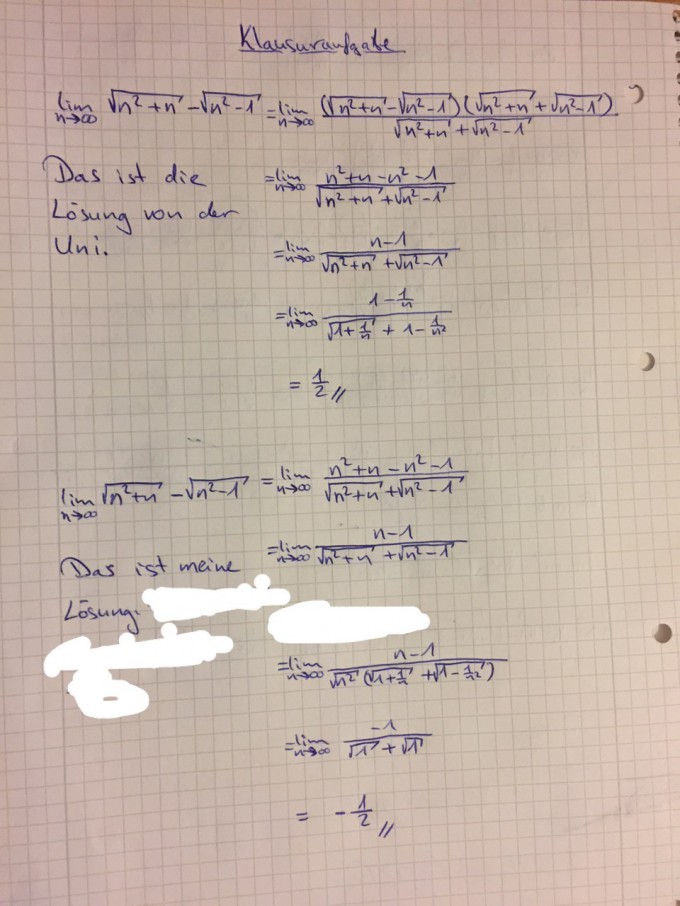 Klausuraufgabe
lim n→∞ √(n²+n) - √(n²-1) = lim n→∞ (√(n²+n) - √(n²-1)) (√(n²+n) + √(n²-1)) / (√(n²+n) + √(n²-1))
Das ist die
Lösung von der
Uni.
= lim n→∞ (n²+n-n²-1) / (√(n²+n) + √(n²-1))
= lim n→∞ (n-1) / (√(n²+n) + √(n²-1))
= lim n→∞ (1 - 1/n) / (√(1+1/n) + 1 - 1/n²)
= 1/2 //
lim n→∞ √(n²+n) - √(n²-1) = lim n→∞ (n²+n-n²-1) / (√(n²+n) + √(n²-1))
= lim n→∞ (n-1) / (√(n²+n) + √(n²-1))
Das ist meine
Lösung.
= lim n→∞ (n-1) / (√n² (√(1+1/n) + √(1-1/n²)))
= lim n→∞ -1 / (√1 + √1)
= - 1/2 //